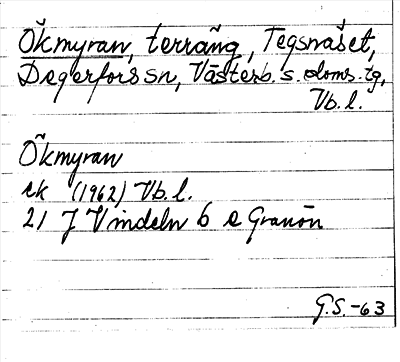 Ökmyran, terräng, Tegsnäset,
Degerfors sn, Västerb. s. doms. tg,
Vb. l.
Ökmyran
ek (1962) Vb. l.
21 J Vindeln 6 e Granön
G.S.-63